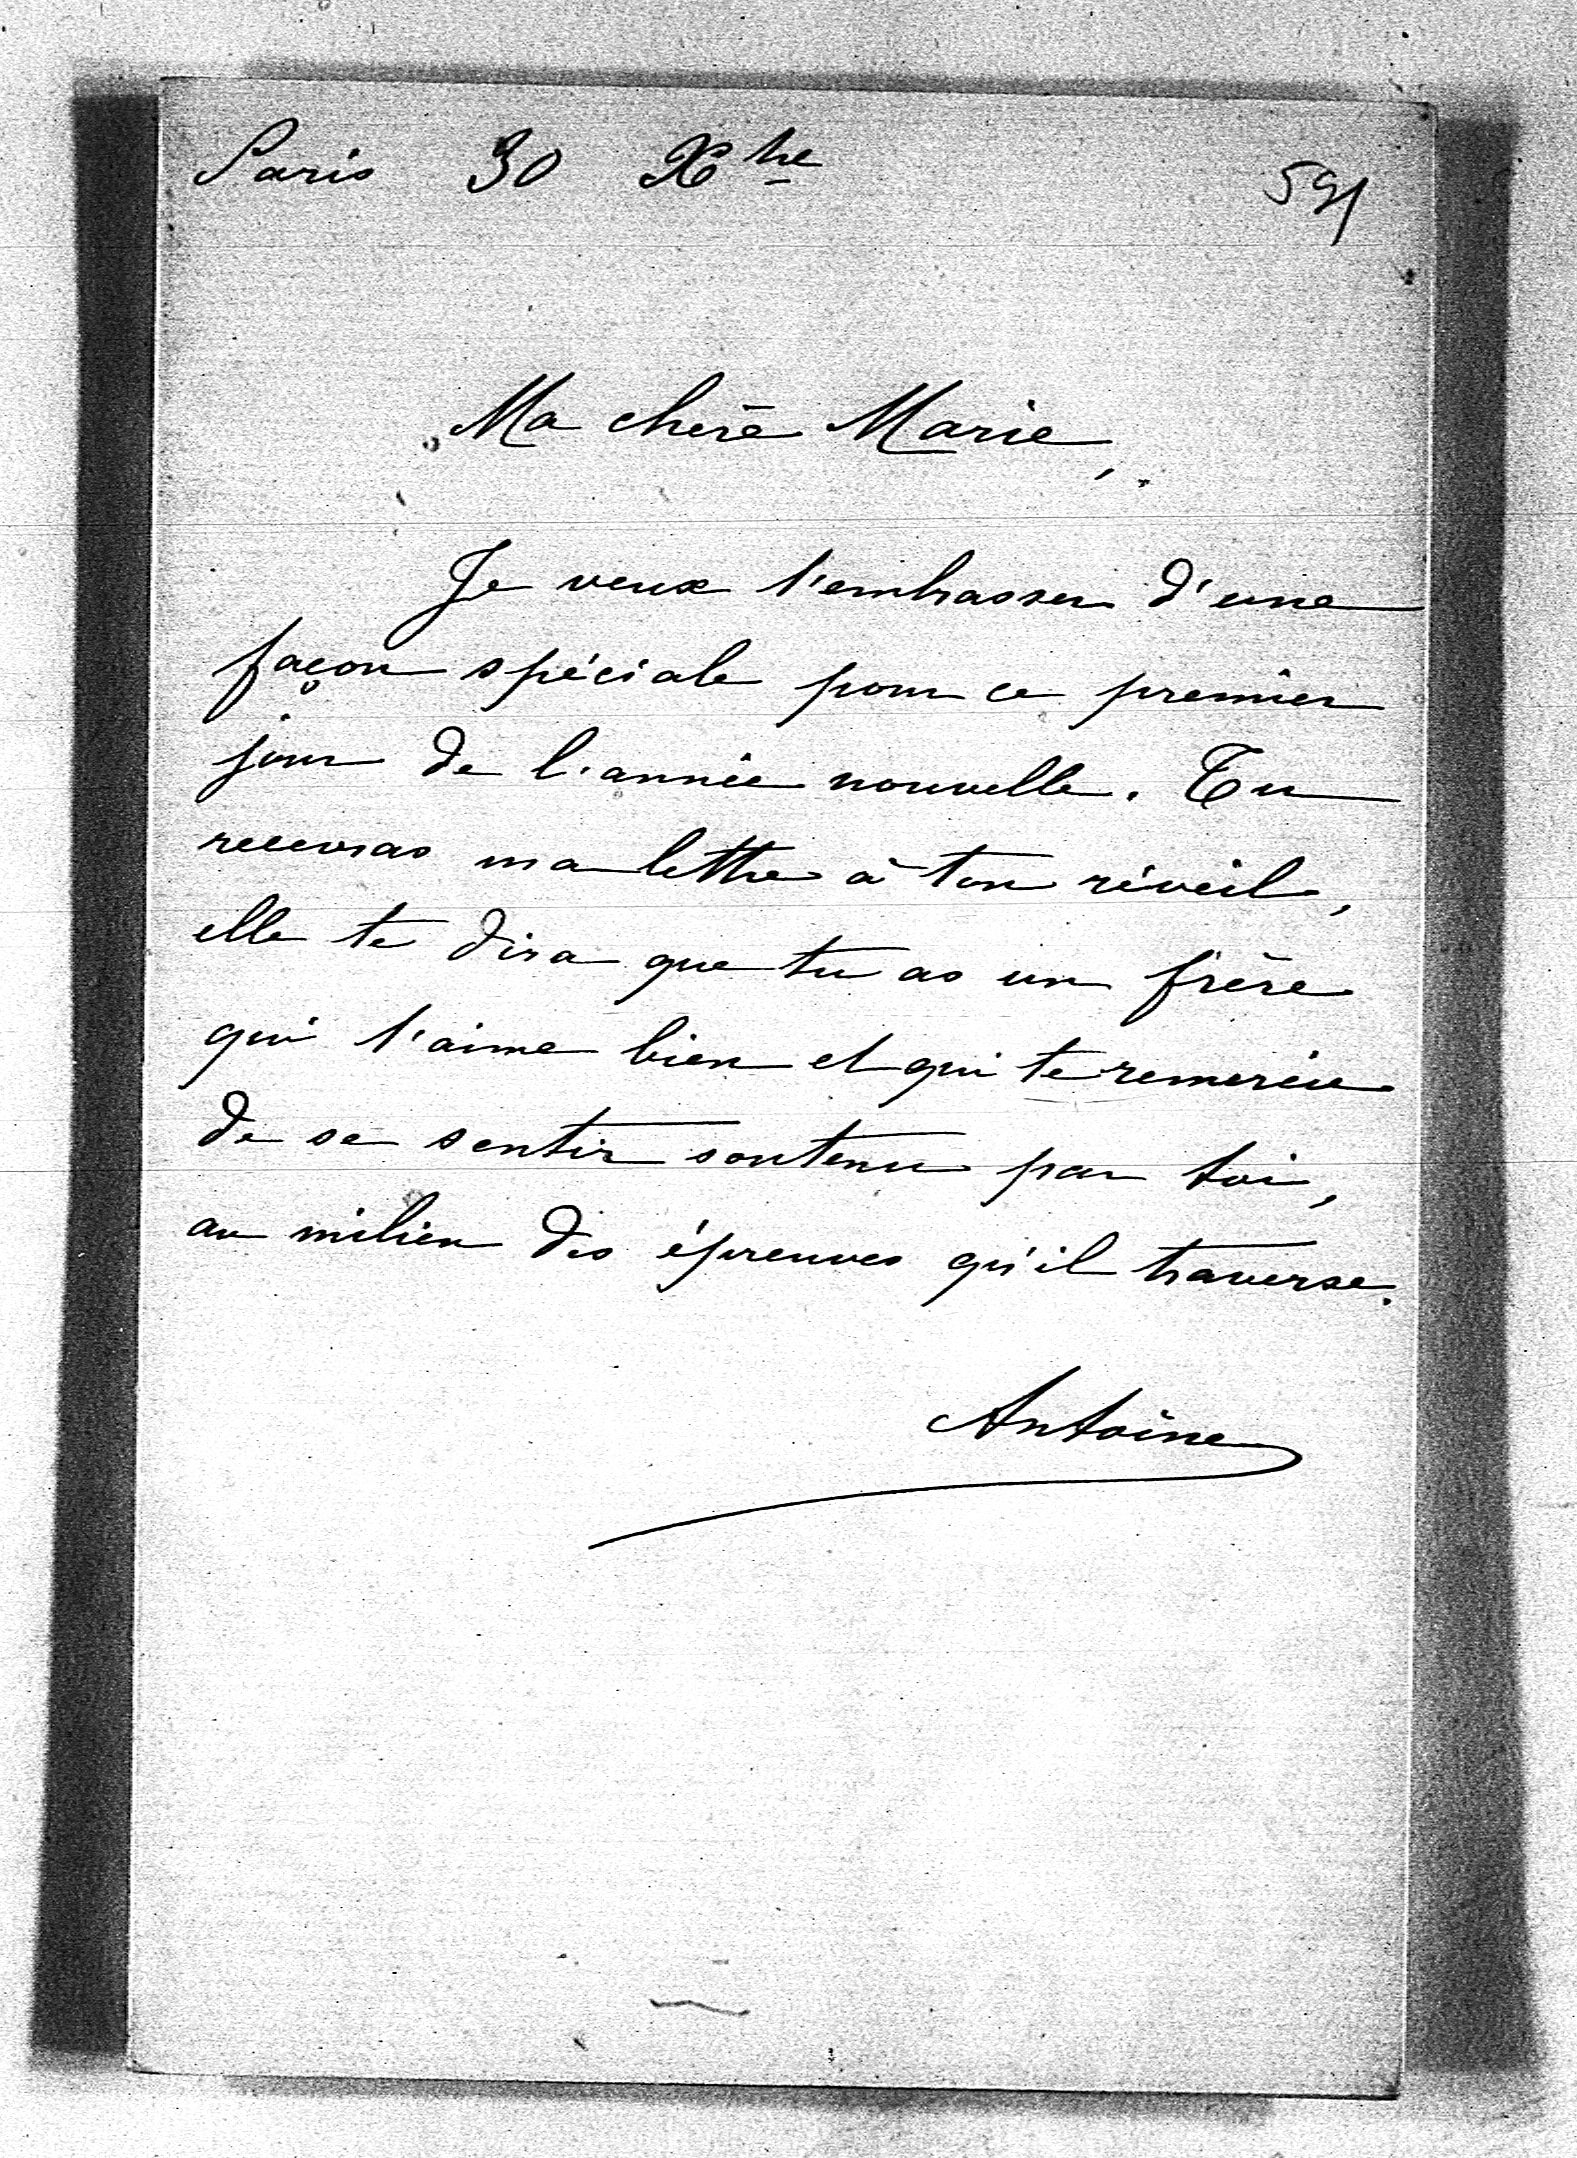 Paris 30 Xbre
591
Ma chère Marie,
Je veux t'embrasser d'une
façon spéciale pour ce premier
jour de l'année nouvelle. Tu
recevras ma lettre à ton réveil,
elle te dira que tu as un frère
qui t'aime bien et qui te remercie
de se sentir soutenu par toi,
au milieu des épreuves qu'il traverse.
Antoine